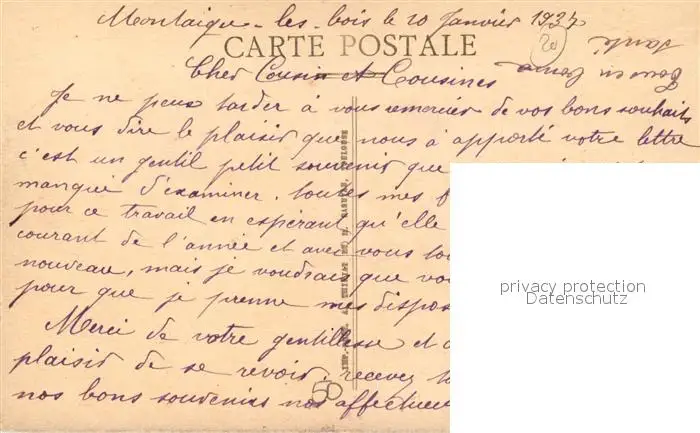 Montaigu-les-bois le 20 Janvier 1937
CARTE POSTALE
Cher Cousin et Cousines
Je ne peux tarder à vous remercier de vos bons souhaits
et vous dire le plaisir que nous à apporté votre lettre
c'est un gentil petit souvenir que
manqué d'examiner. toutes mes f
pour ce travail en espérant qu'elle
courant de l'année et avec vous tou
nouveau, mais je voudrais que vou
pour que je prenne mes dispos
Merci de votre gentillesse et a
plaisir de se revoir. recevez
nos bons souvenirs nos affectueu
50
20
privacy protection
Datenschutz